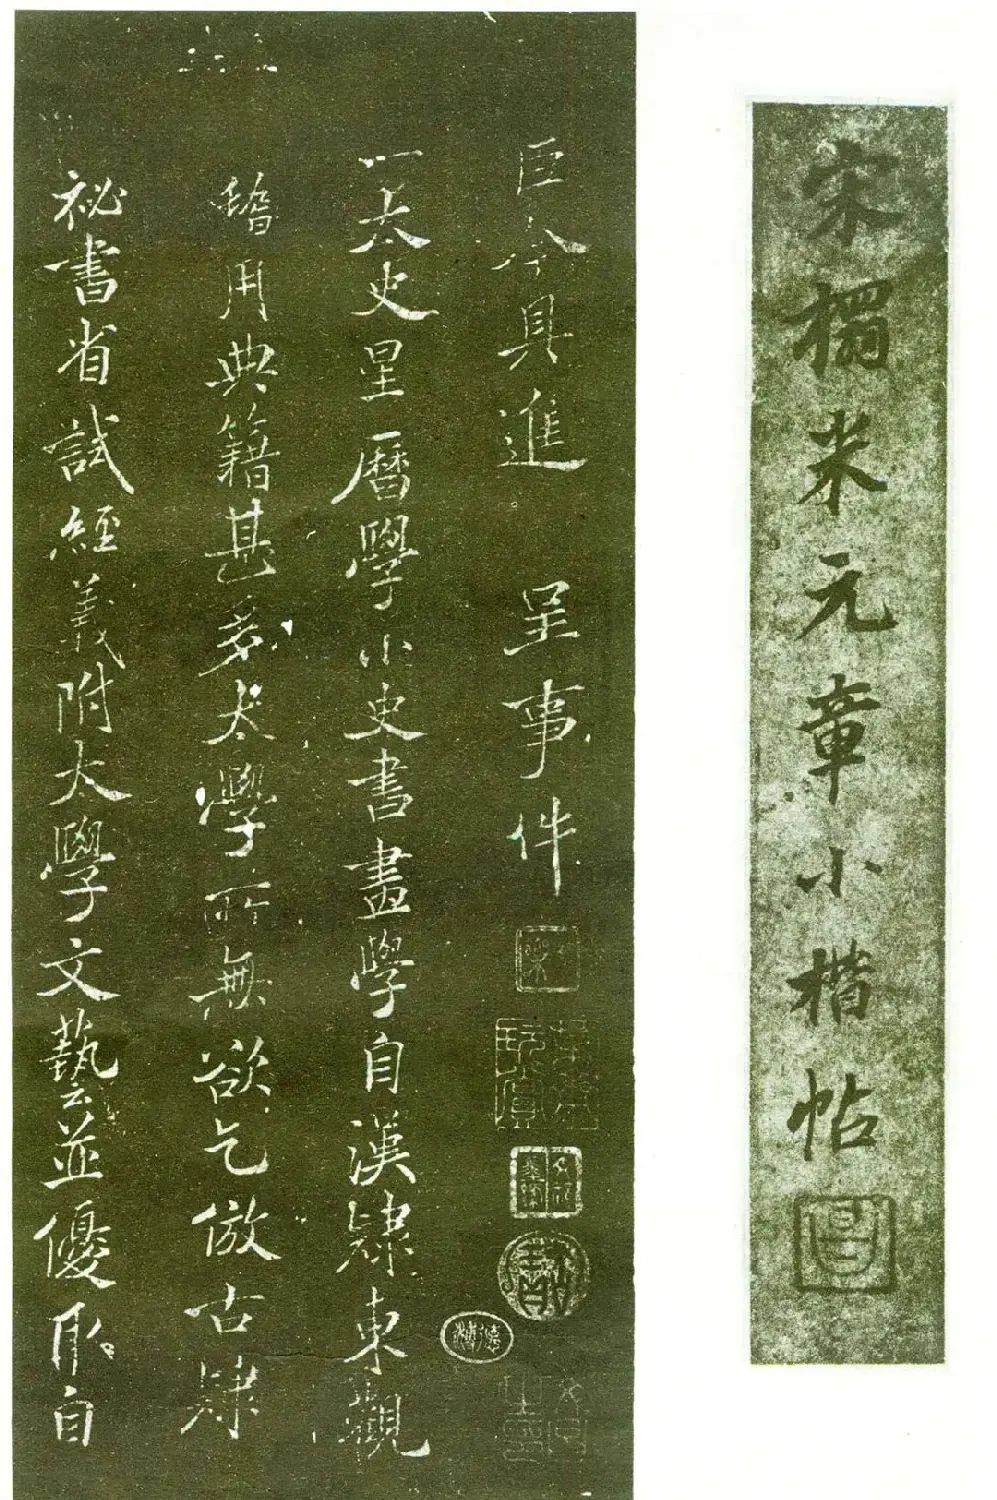 宋搨米元章小楷帖
臣今具進 呈事件
一太史星曆學小史書畫學自漢隸東觀
稽用典籍甚多太學所無欲乞倣古隸
祕書省試經義附太學文藝並優取自